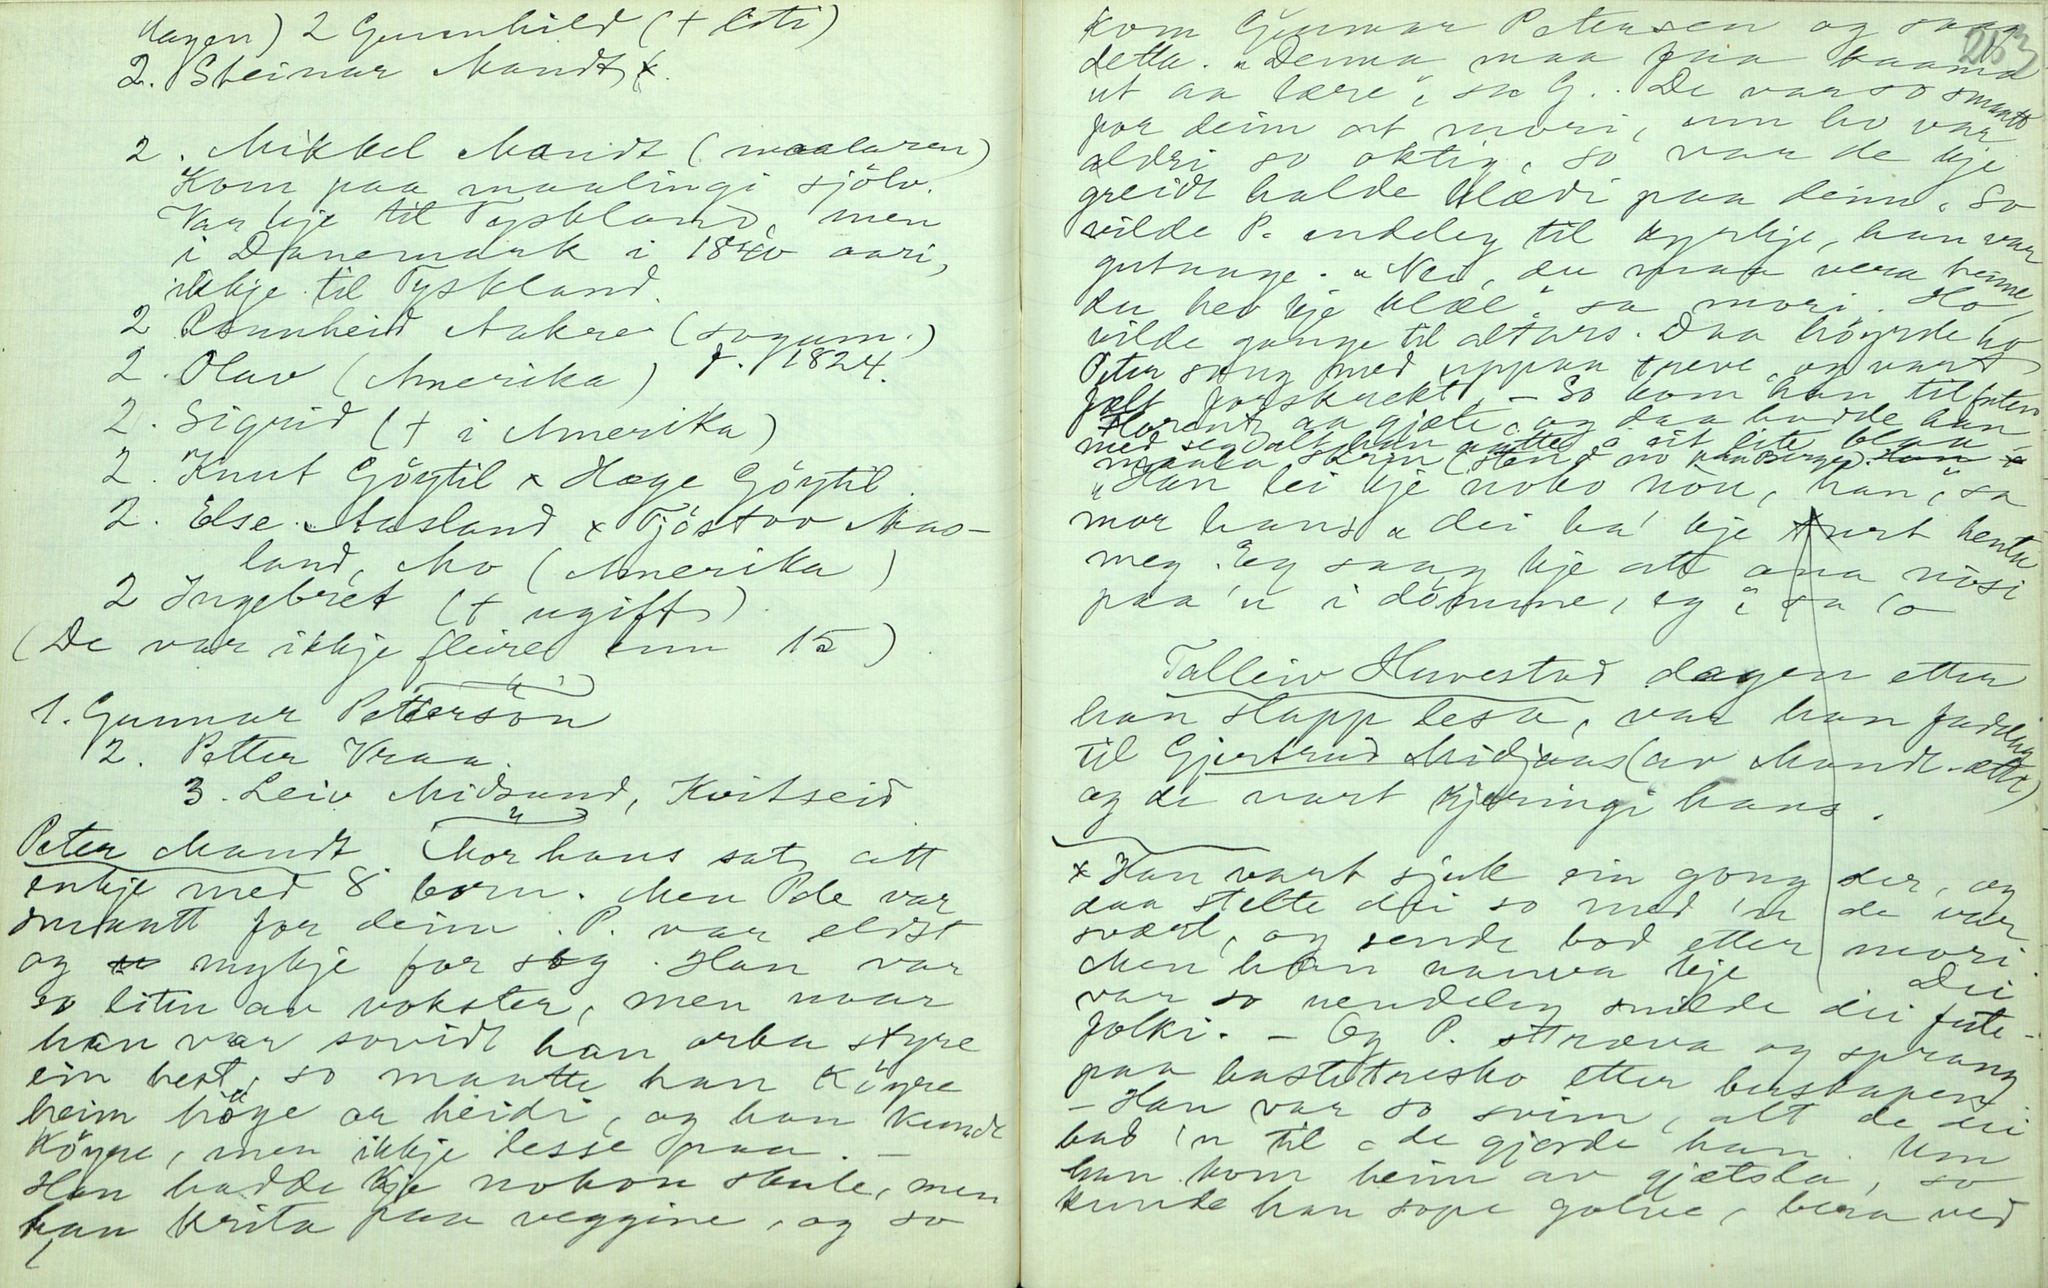 Hagen) 2 Gunnhild (+ liti)
2. Steinar Mandt x.
2. Mikkel Mandt (maalaren)
Kom paa maalingi sjölv.
Var kje til Tyskland, men
i Danemark i 1840 aari,
ikkje til Tyskland.
2 Ramnheid Aakre (sogum.)
2. Olav (Amerika) f. 1824.
2. Sigrid (+ i Amerika)
2. Knut Göytil x Hæge Göytil.
2. Else Aasland x Tjöstov Aas-
land, Mo (Amerika)
2 Ingebret (+ ugift)
(De var ikkje fleire enn 15).
1. Gunnar Petterson
2. Petter Vraa.
3. Leiv Midsund, Kvitseid
Peter Mandt. Mor hans sat att
enkje med 8 born. Men de var
smaatt for deim. P. var eldst
og mykje for seg. Han var
so liten av vokster, men naar
han var sovidt han orka styre
ein hest, so maatte han köyre
heim höye or heidi, og han kunde
köyre, men ikkje lesse paa. —
Han hadde kje nokon skule, men
han krita paa veggine, og so
263
kom Gunnar Petersen og saag
detta. "Denna maa faa kaama
ut aa lære", sa G. De var so smaatt
for deim at mori, um ho var
aldri so oktig, so var de kje
greidt halde klædi paa deim. So
vilde P. endeleg til kyrkje, han var
gutunge. "Nei, du maa vera heime,
du hev kje klæe" sa mori. Ho
vilde gange til altars. Daa höyrde ho
Peter song med uppaa treve, og vart
fælt forskrekt. — So kom han til futen
aa gjæte, og daa hadde han
med seg alt han aatte i eit lite blaa
maala skrin
"Han lei kje noko nön, han", sa
mor hans "dei ha' kje turt henta
meg. Eg saag kje att ana nösi
paa 'n i dömme, eg", sa 'o
Talleiv Huvestad dagen etter
han slapp lesa, var han fadder
til Gjertrud Midjaas (av Mandt-ætti)
og de vart kjeringi hans.
x Han vart sjuk ein gong der, og
daa stelte dei so med 'n de var
svært, og sende bod etter mori.
Men han kje Dei
var so uendeleg snilde dei fute-
folki. — Og P. stræva og sprang
paa bastetresko etter buskapen
— Han var so svim, alt de dei
bad 'n til de gjorde han. Um
han kom heim av gjætsla, so
kunde han sope golve, bera ved